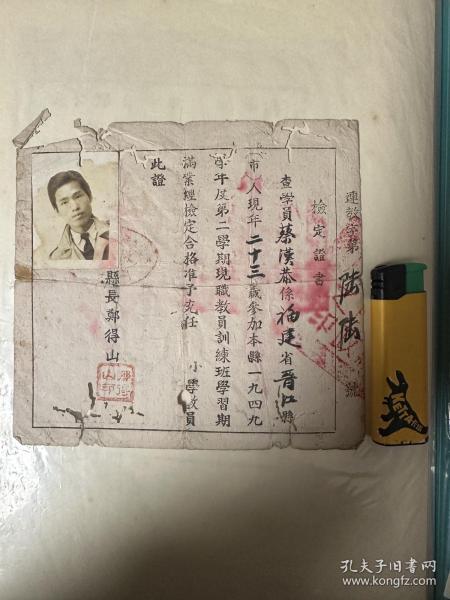 連教字第陸陸號
檢定證書
查學員蔡漢恭係福建省晋江縣
市人現年二十三歲參加本縣一九四九
學年度第二學期現職教員訓練班學習期
滿業經檢定合格准予充任 小學教員
此證
縣長鄭得山
孔夫子旧书网
www.kongfz.com